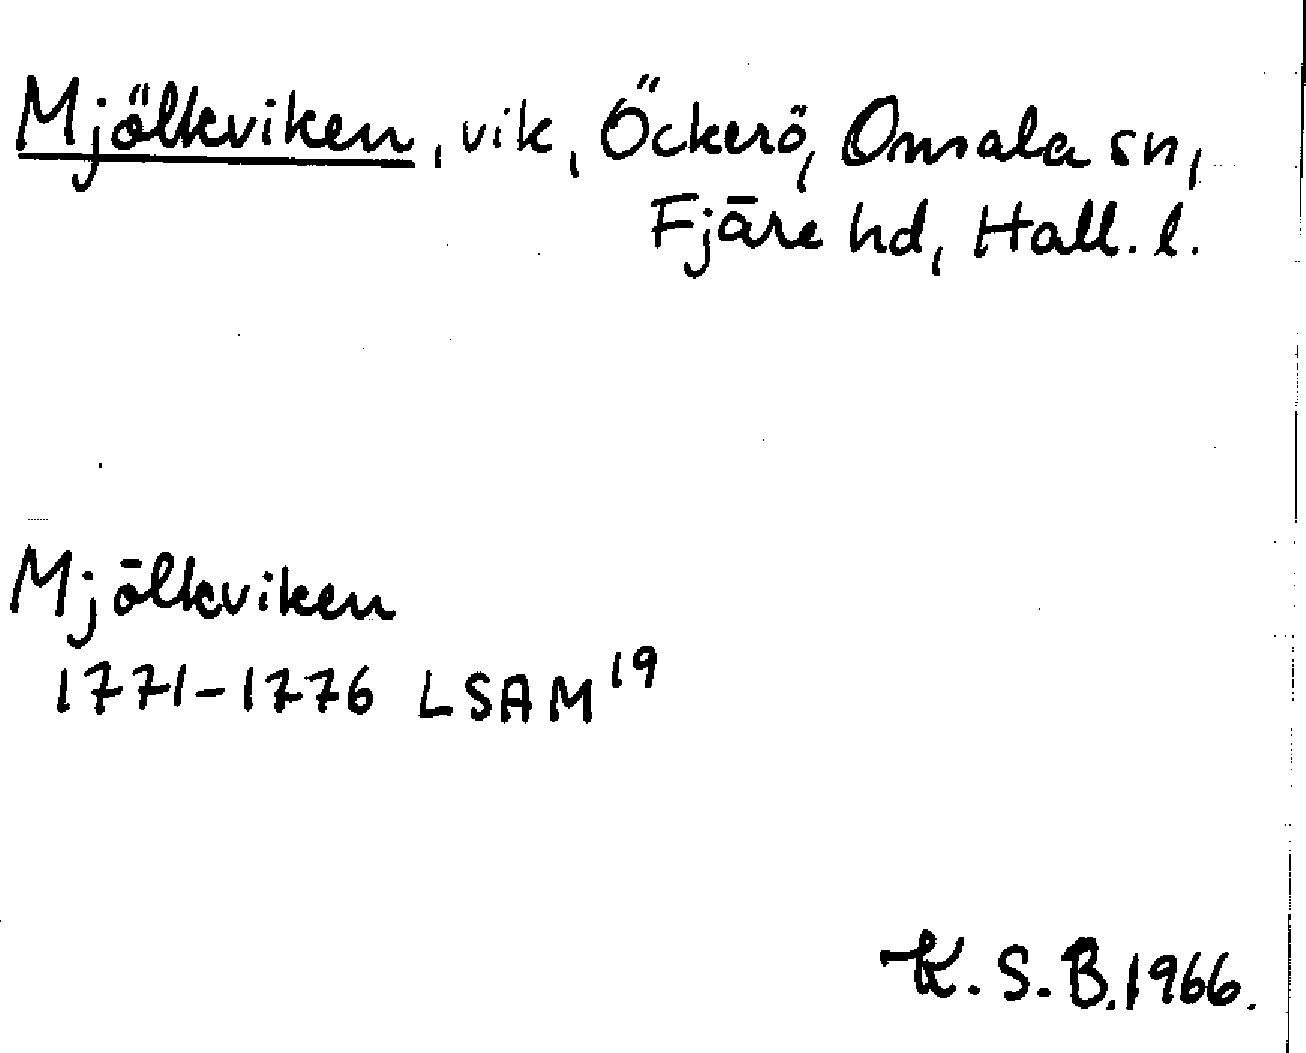 Mjölkviken, vik, Öckerö, Onsala sn,
Fjäre hd, Hall. l.
Mjölkviken
1771-1776 LSAM 19
K. S. B. 1966.